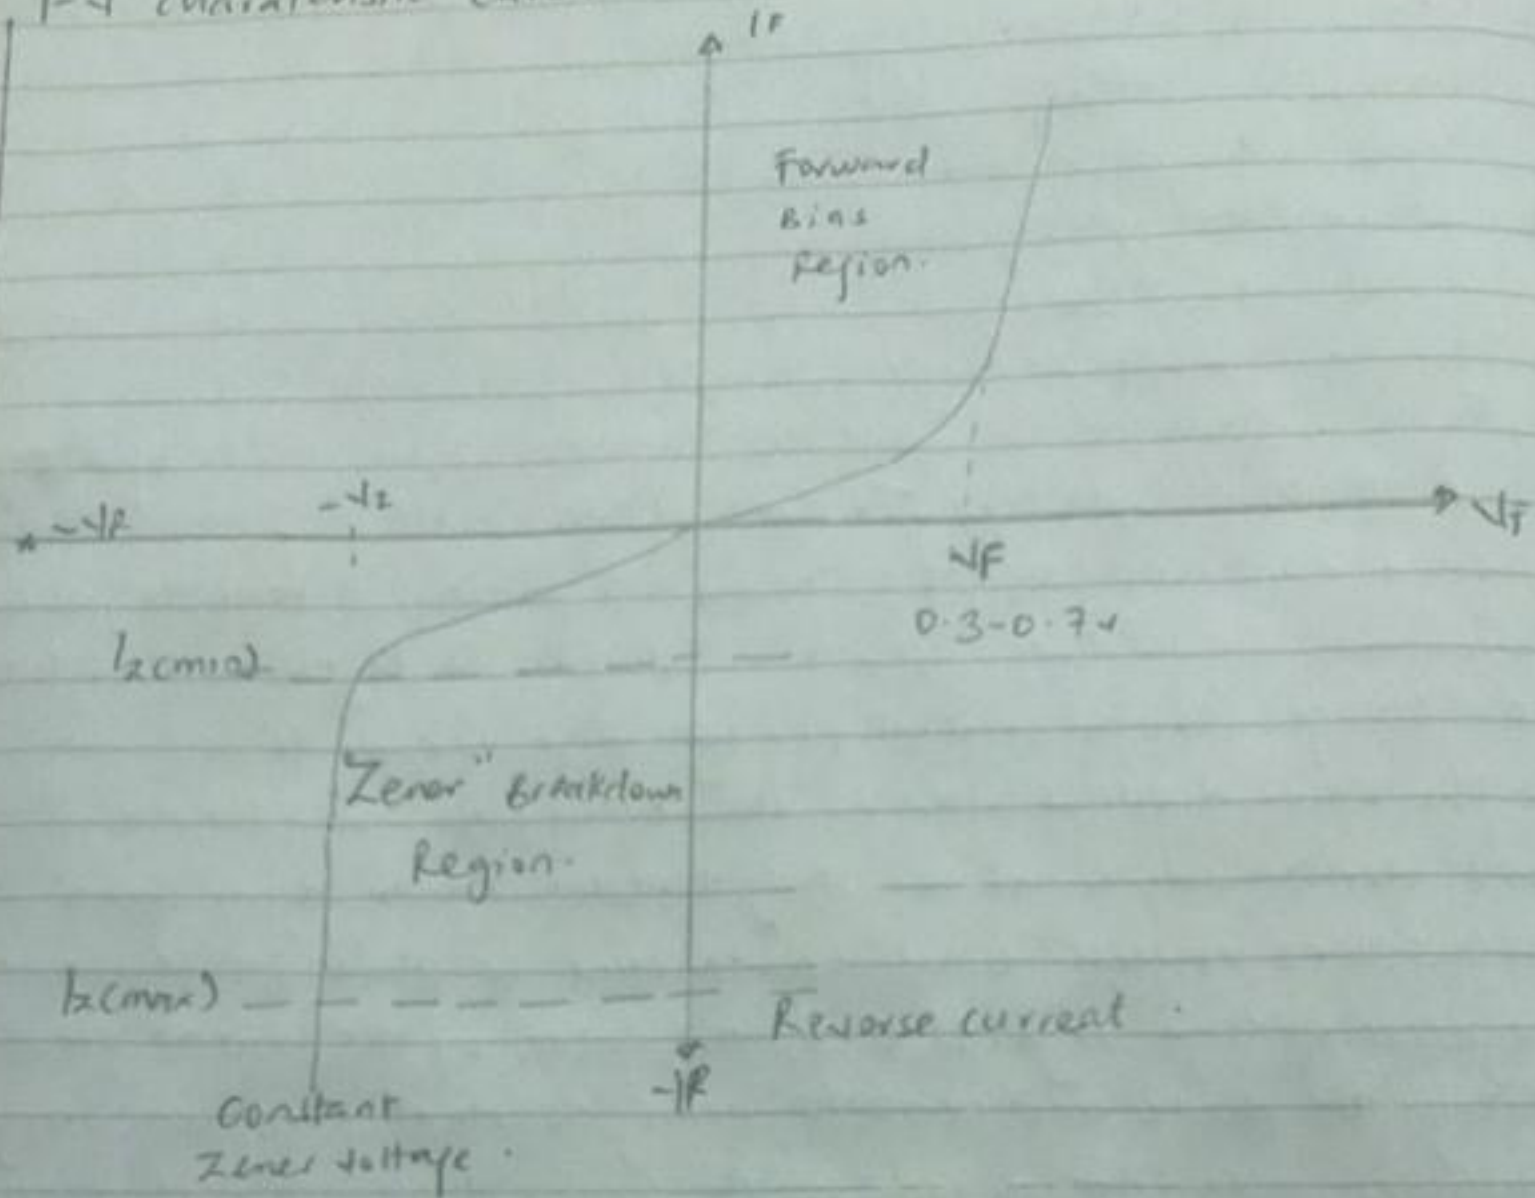 I-V Characteristic
IF
Forward
Bias
Region.
-VR
-VZ
VF
VF
0.3-0.7v
Iz(min)
"Zener" Breakdown
Region.
Iz(max)
Reverse current
-IR
Constant
Zener voltage.